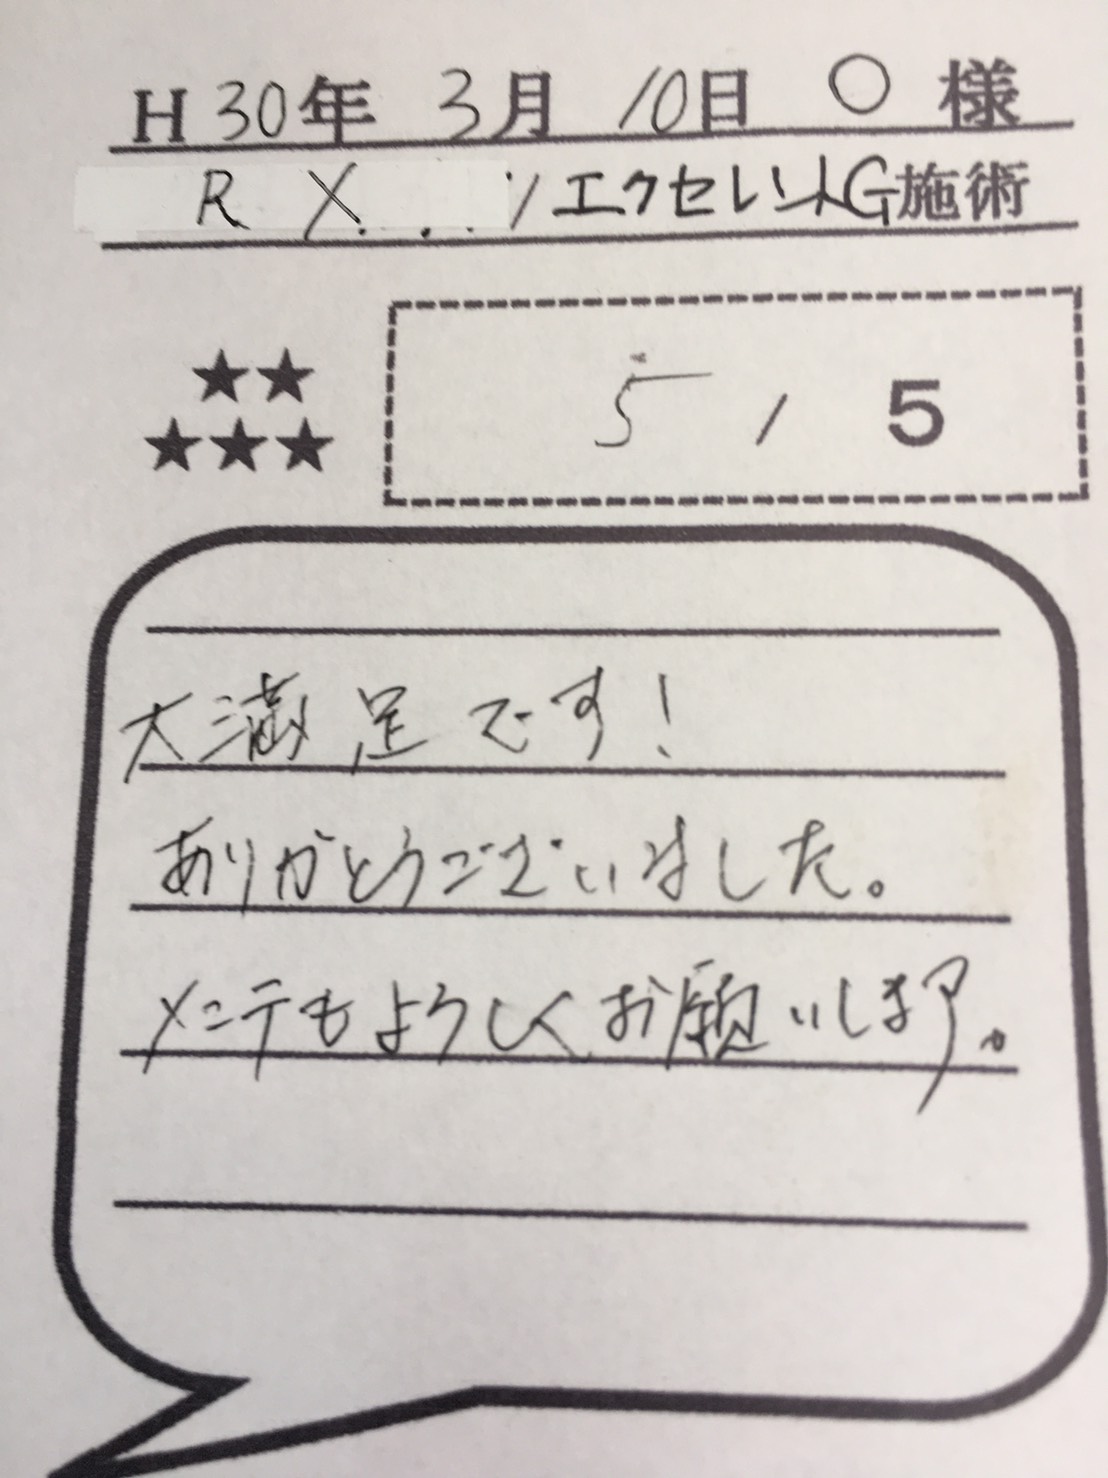 H 30年 3月 10日 ○ 様
R X . . . . / エクセレントG施術
★★
★★★
5 / 5
大満足です!
ありがとうございました。
メニテもよろしくお願いします。